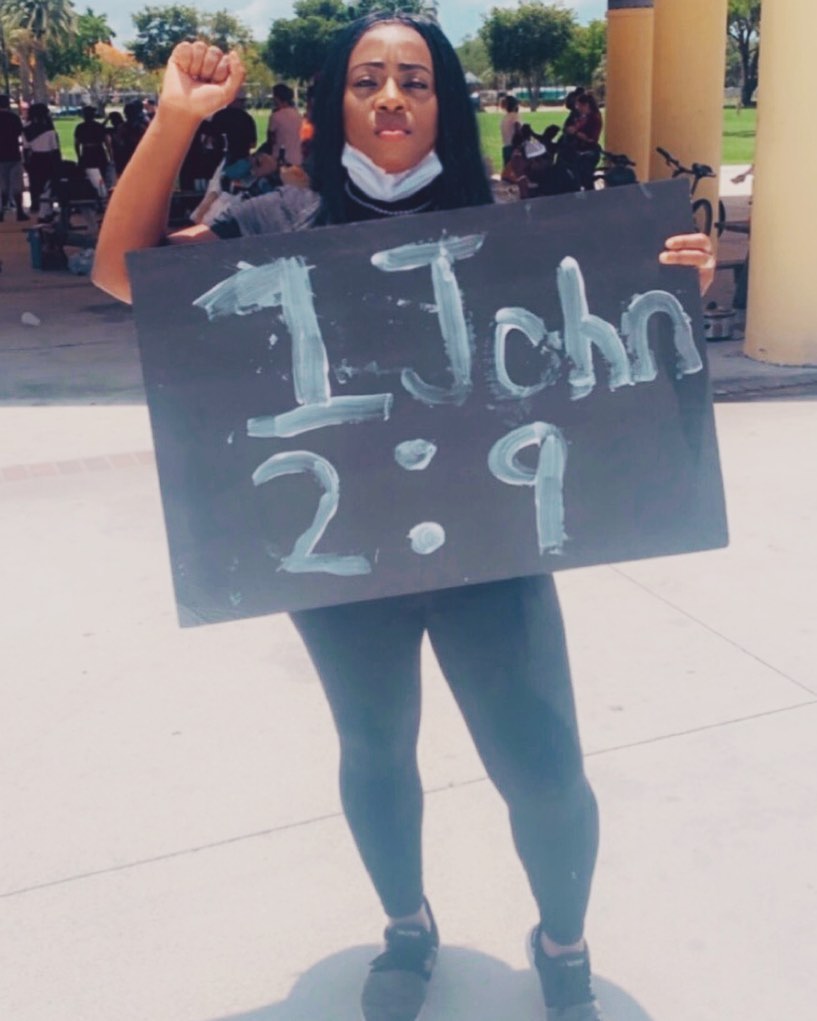 1 John
2:9